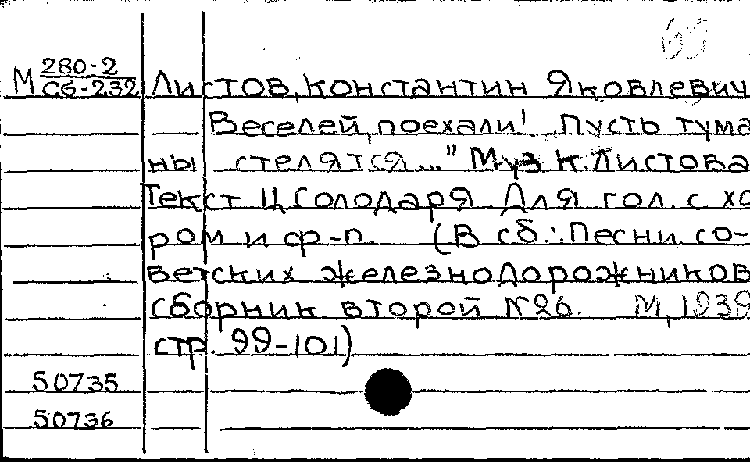 65
М 280-2
Сб-232
Листов, Константин Яковлевич
Веселей, поехали! „Пусть тума
ны стелятся..." Муз. К. Листова
Текст Ц. Солодаря. Для гол. с хо
ром и ф-п. (В сб.: Песни со-
ветских железнодорожников
сборник второй №26. М, 1939
стр. 99-101)
50735
50736